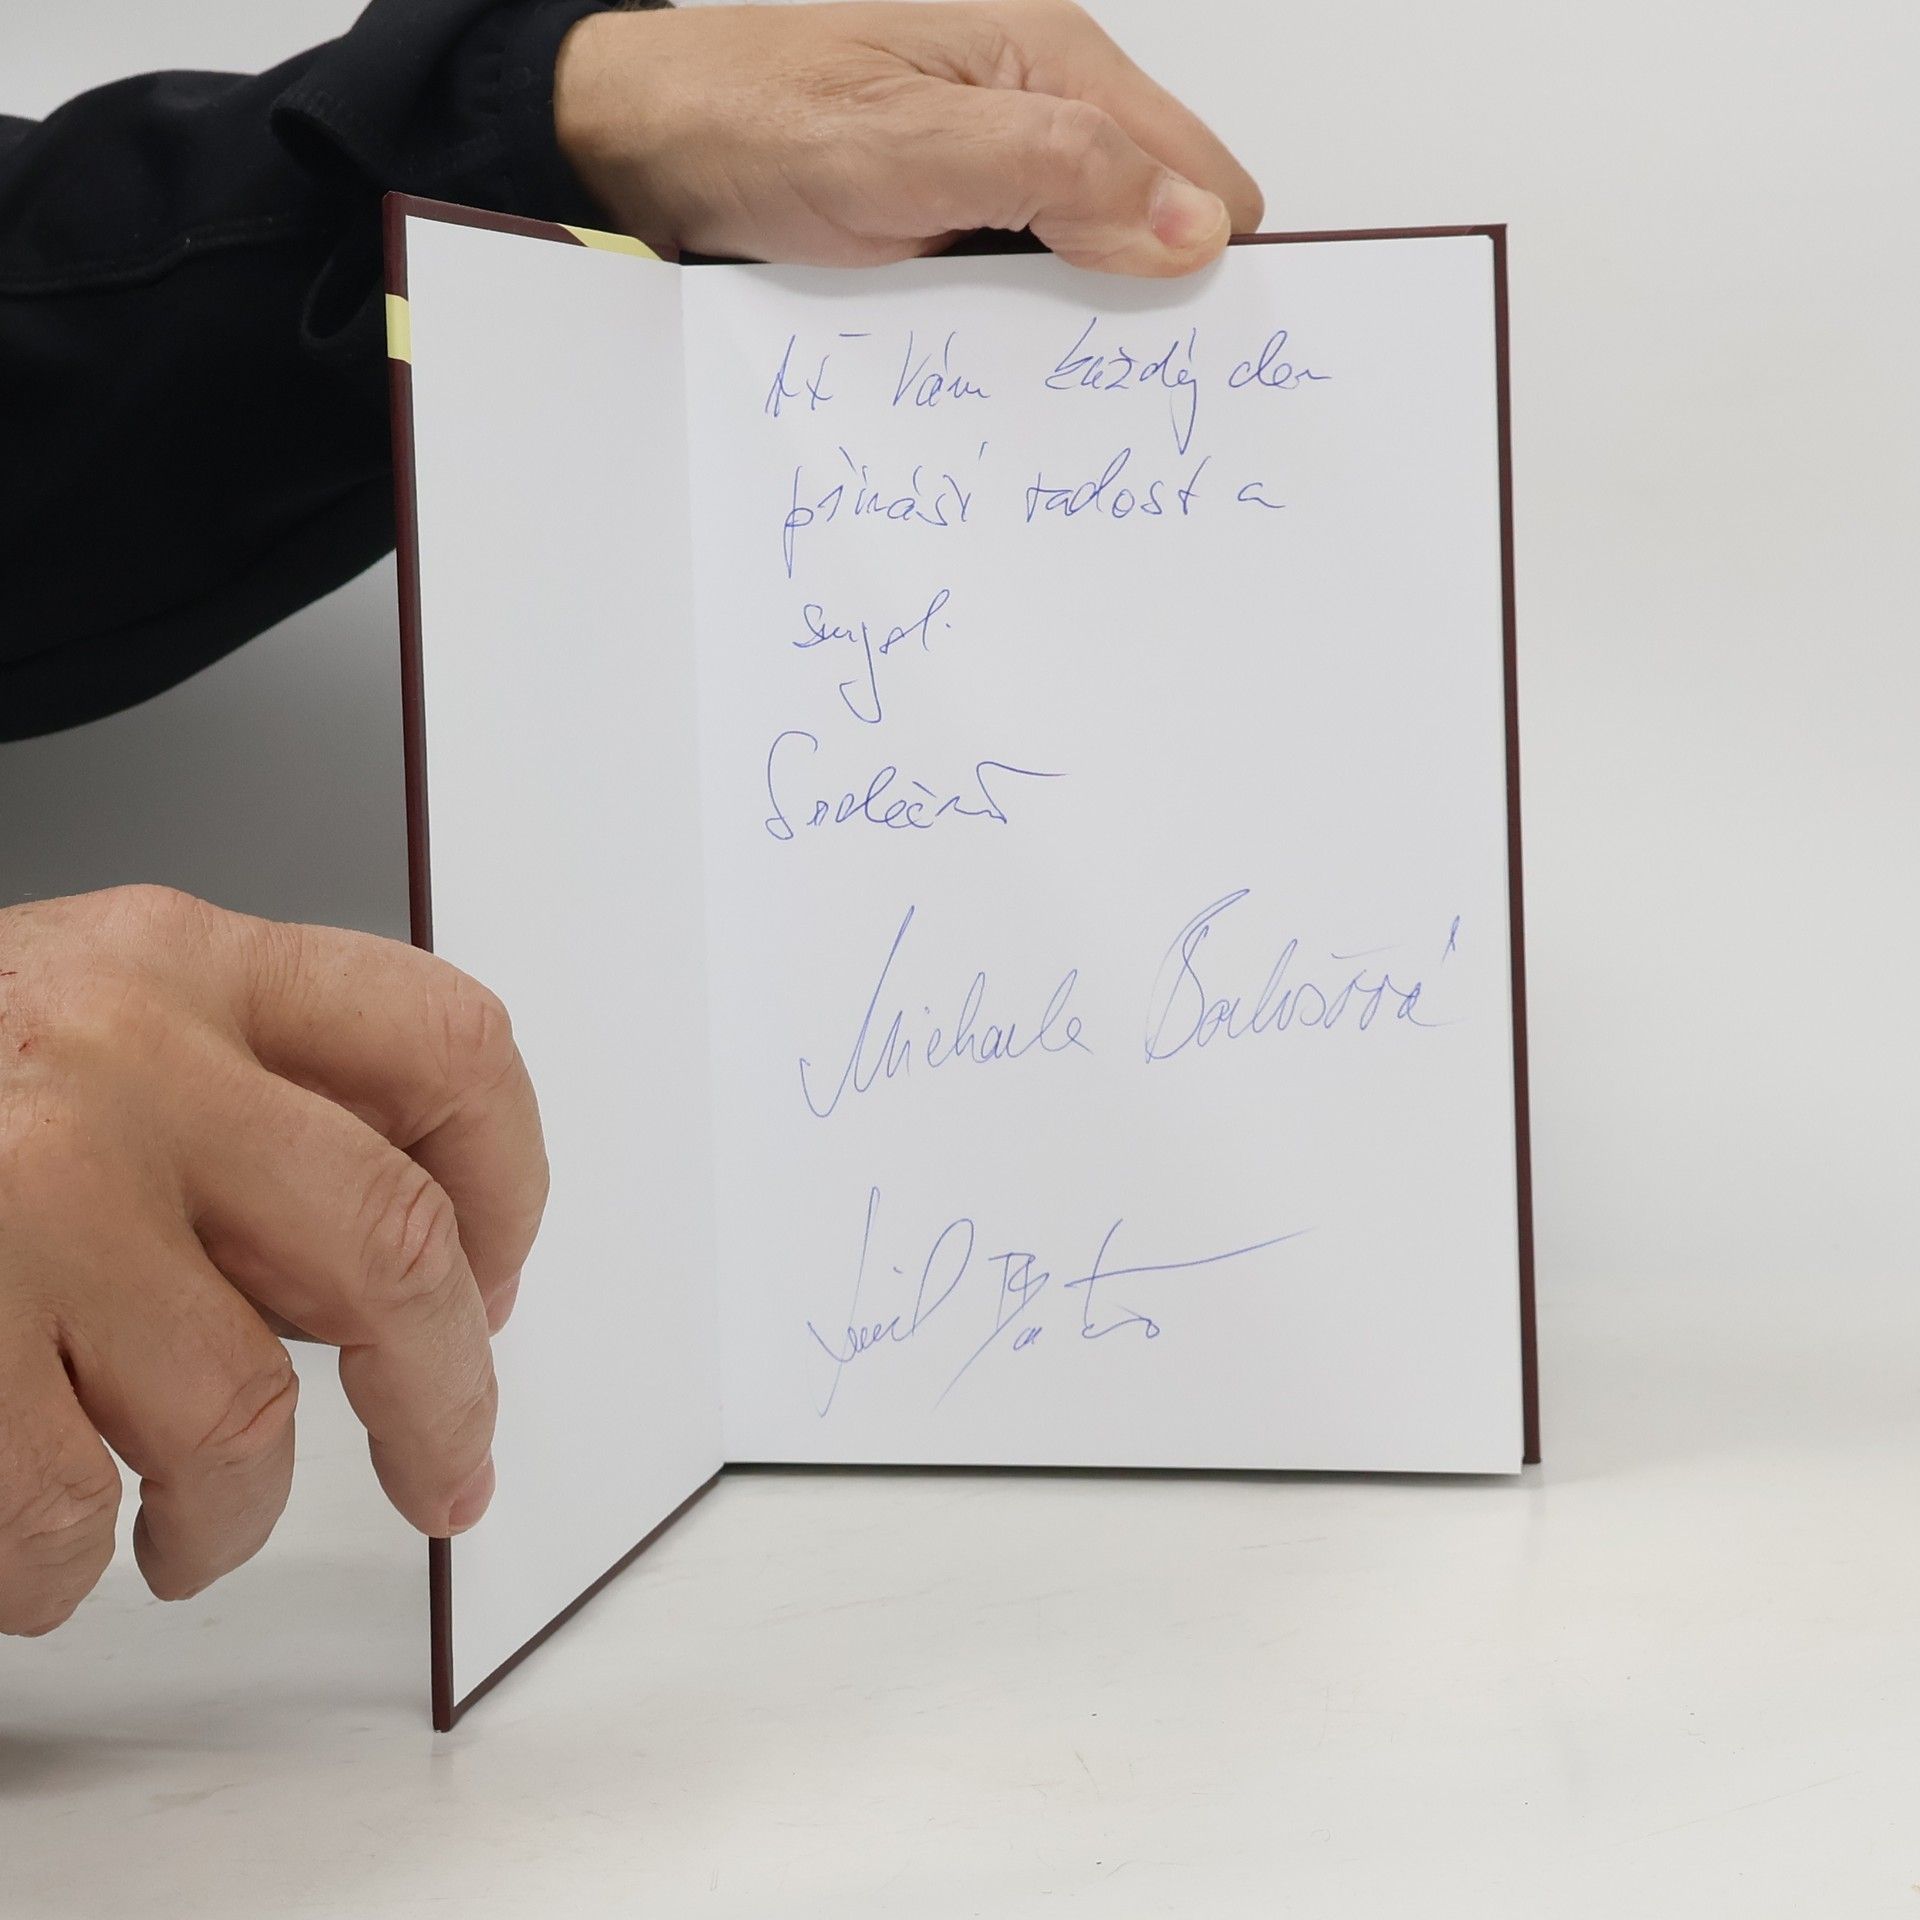 Ať Vám každý den
přináší radost a
smysl.
Srdečně
Michaela